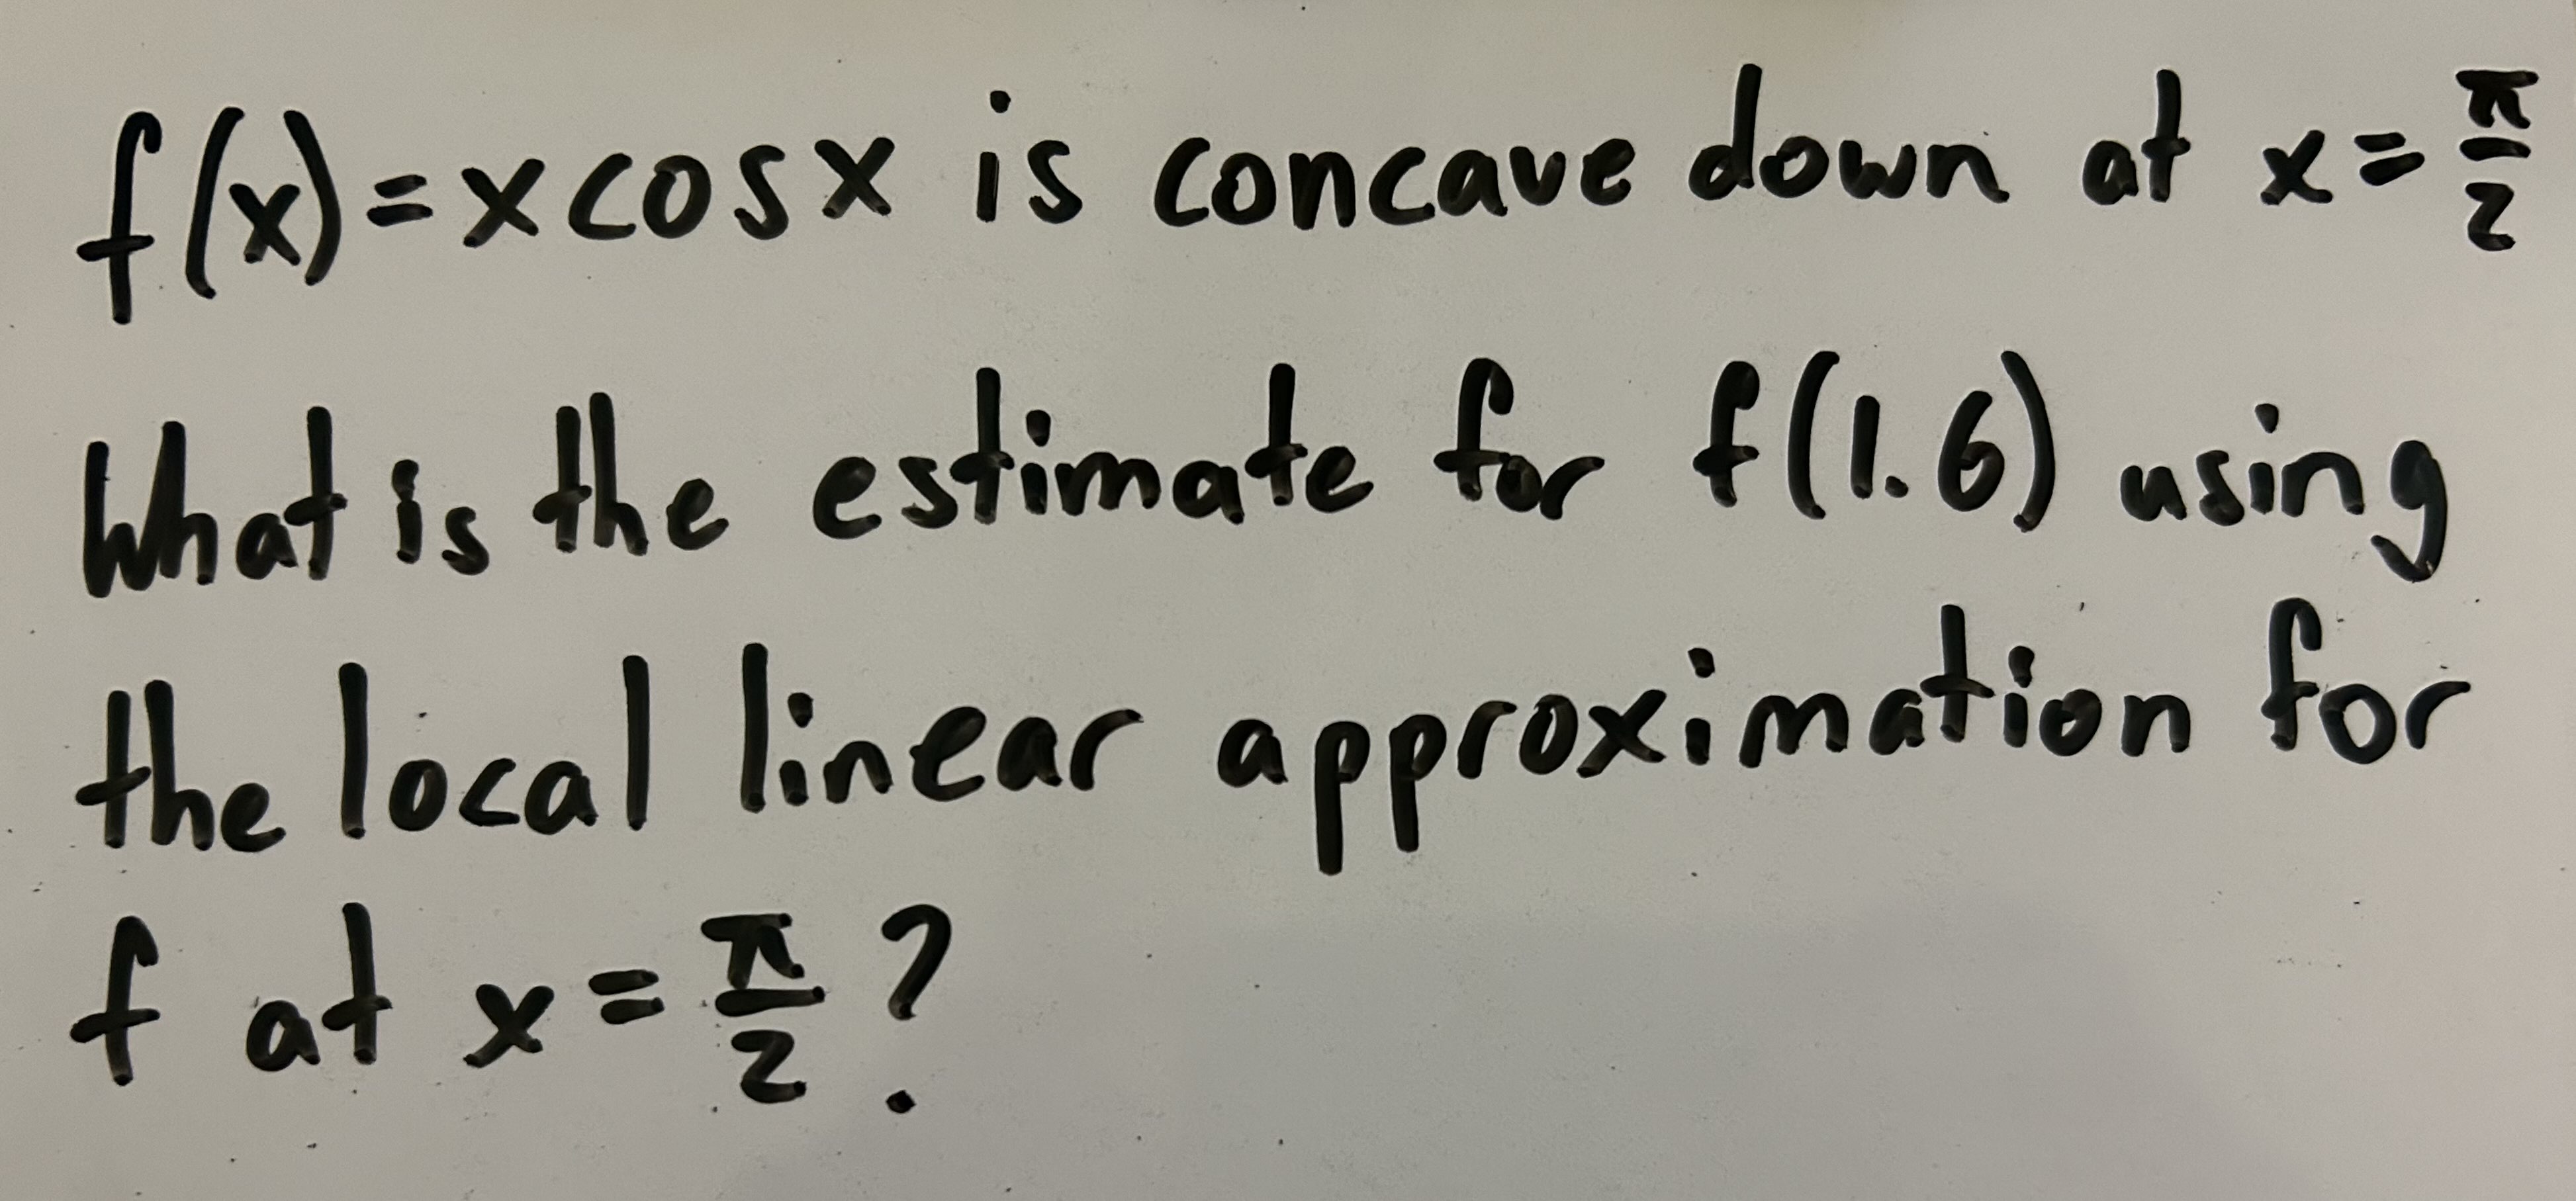 f(x)=xcosx is concave down at x=π/2
What is the estimate for f(1.6) using
the local linear approximation for
f at x=π/2?